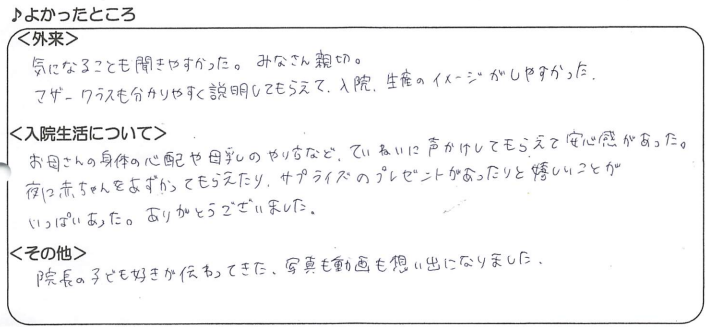 ♪よかったところ
<外来>
気になることも聞きやすかった。みなさん親切。
マザークラスも分かりやすく説明してもらえて、入院、生産のイメージがしやすかった。
<入院生活について>
お母さんの身体の心配や母乳のやり方など、ていねいに声かけしてもらえて安心感があった。
夜に赤ちゃんをあずかってもらえたり、サプライズのプレゼントがあったりと嬉しいことが
いっぱいあった。ありがとうございました。
<その他>
院長の子ども好きが伝わってきた、写真も動画も想い出になりました。